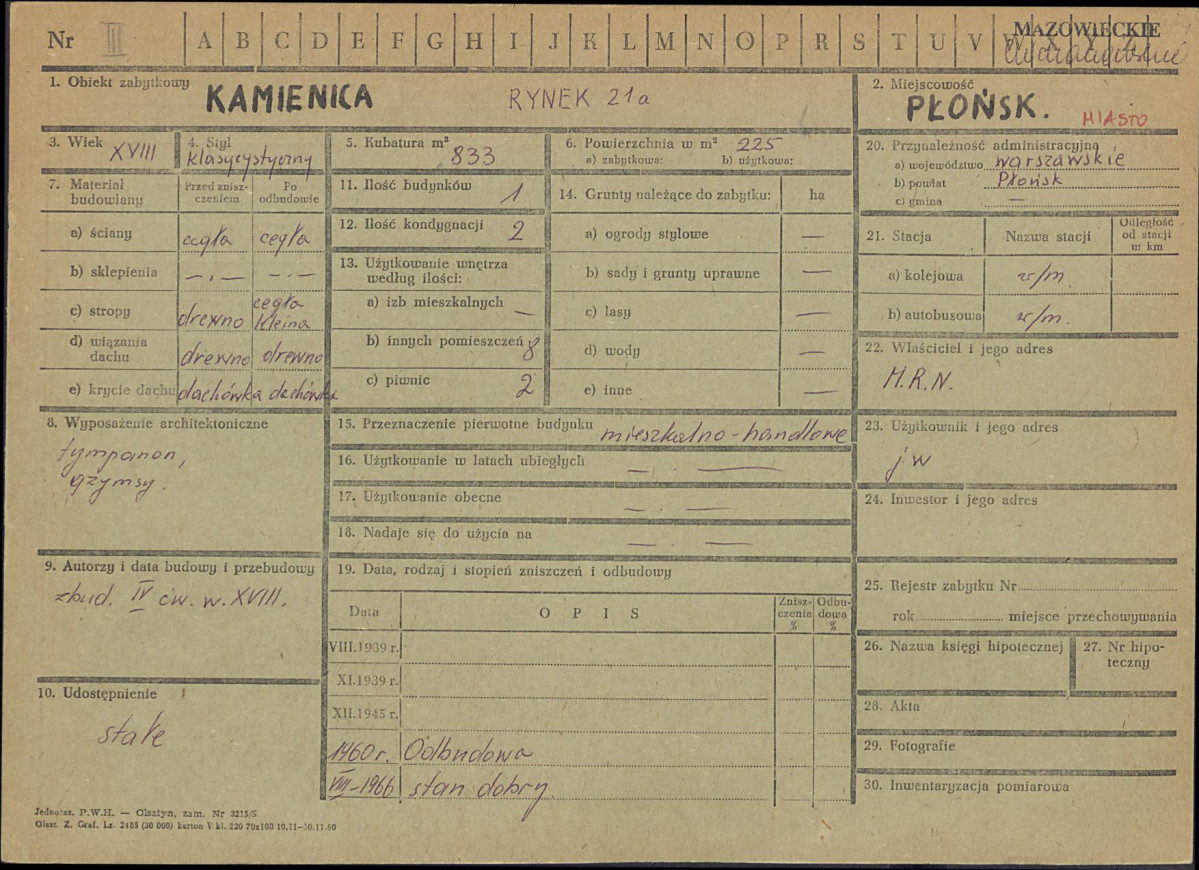 Nr III A B C D E F G H I J K L M N O P R S T U V W X Y Z
MAZOWIECKIE
1. Obiekt zabytkowy
KAMIENICA RYNEK 21a
2. Miejscowość
PŁOŃSK. MIASTO
3. Wiek XVIII
4. Styl
klasycystyczny
5. Kubatura m³ 833
6. Powierzchnia w m² 225
a) zabytkowa: b) użytkowa:
20. Przynależność administracyjna
a) województwo warszawskie
b) powiat Płońsk
c) gmina —
7. Materiał budowlany
Przed znisz-
czeniem
Po
odbudowie
a) ściany cegła cegła
b) sklepienia —.— —.—
c) stropy drewno cegła
kleina
d) wiązania
dachu drewno drewno
e) krycie dachu dachówka dachówka
11. Ilość budynków 1
12. Ilość kondygnacji 2
13. Użytkowanie wnętrza
według ilości:
a) izb mieszkalnych —
b) innych pomieszczeń 8
c) piwnic 2
14. Grunty należące do zabytku: ha
a) ogrody stylowe —
b) sady i grunty uprawne —
c) lasy —
d) wody —
e) inne —
21. Stacja Nazwa stacji
Odległość
od stacji
w km
a) kolejowa w/m.
b) autobusowa w/m.
22. Właściciel i jego adres
M.R.N.
8. Wyposażenie architektoniczne
tympanon,
gzymsy.
15. Przeznaczenie pierwotne budynku mieszkalno-handlowe
16. Użytkowanie w latach ubiegłych —.—
17. Użytkowanie obecne —.—
18. Nadaje się do użycia na —.—
23. Użytkownik i jego adres
jw
24. Inwestor i jego adres
9. Autorzy i data budowy i przebudowy
zbud. IV ćw. w. XVIII.
10. Udostępnienie
stałe
19. Data, rodzaj i stopień zniszczeń i odbudowy
Data OPIS
Znisz-
czenia
%
Odbu-
dowa
%
VIII.1939 r.
XI.1939 r.
XII.1945 r.
1960 r. Odbudowa
VIII-1966 stan dobry.
25. Rejestr zabytku Nr
rok miejsce przechowywania
26. Nazwa księgi hipotecznej
27. Nr hipo-
teczny
28. Akta
29. Fotografie
30. Inwentaryzacja pomiarowa
Jednoraz. P.W.H. — Olsztyn, zam. Nr 3215/S
Olszt. Z. Graf. Lz. 2485 (30 000) karton V kl. 220 70x100 10.11—30.11.60